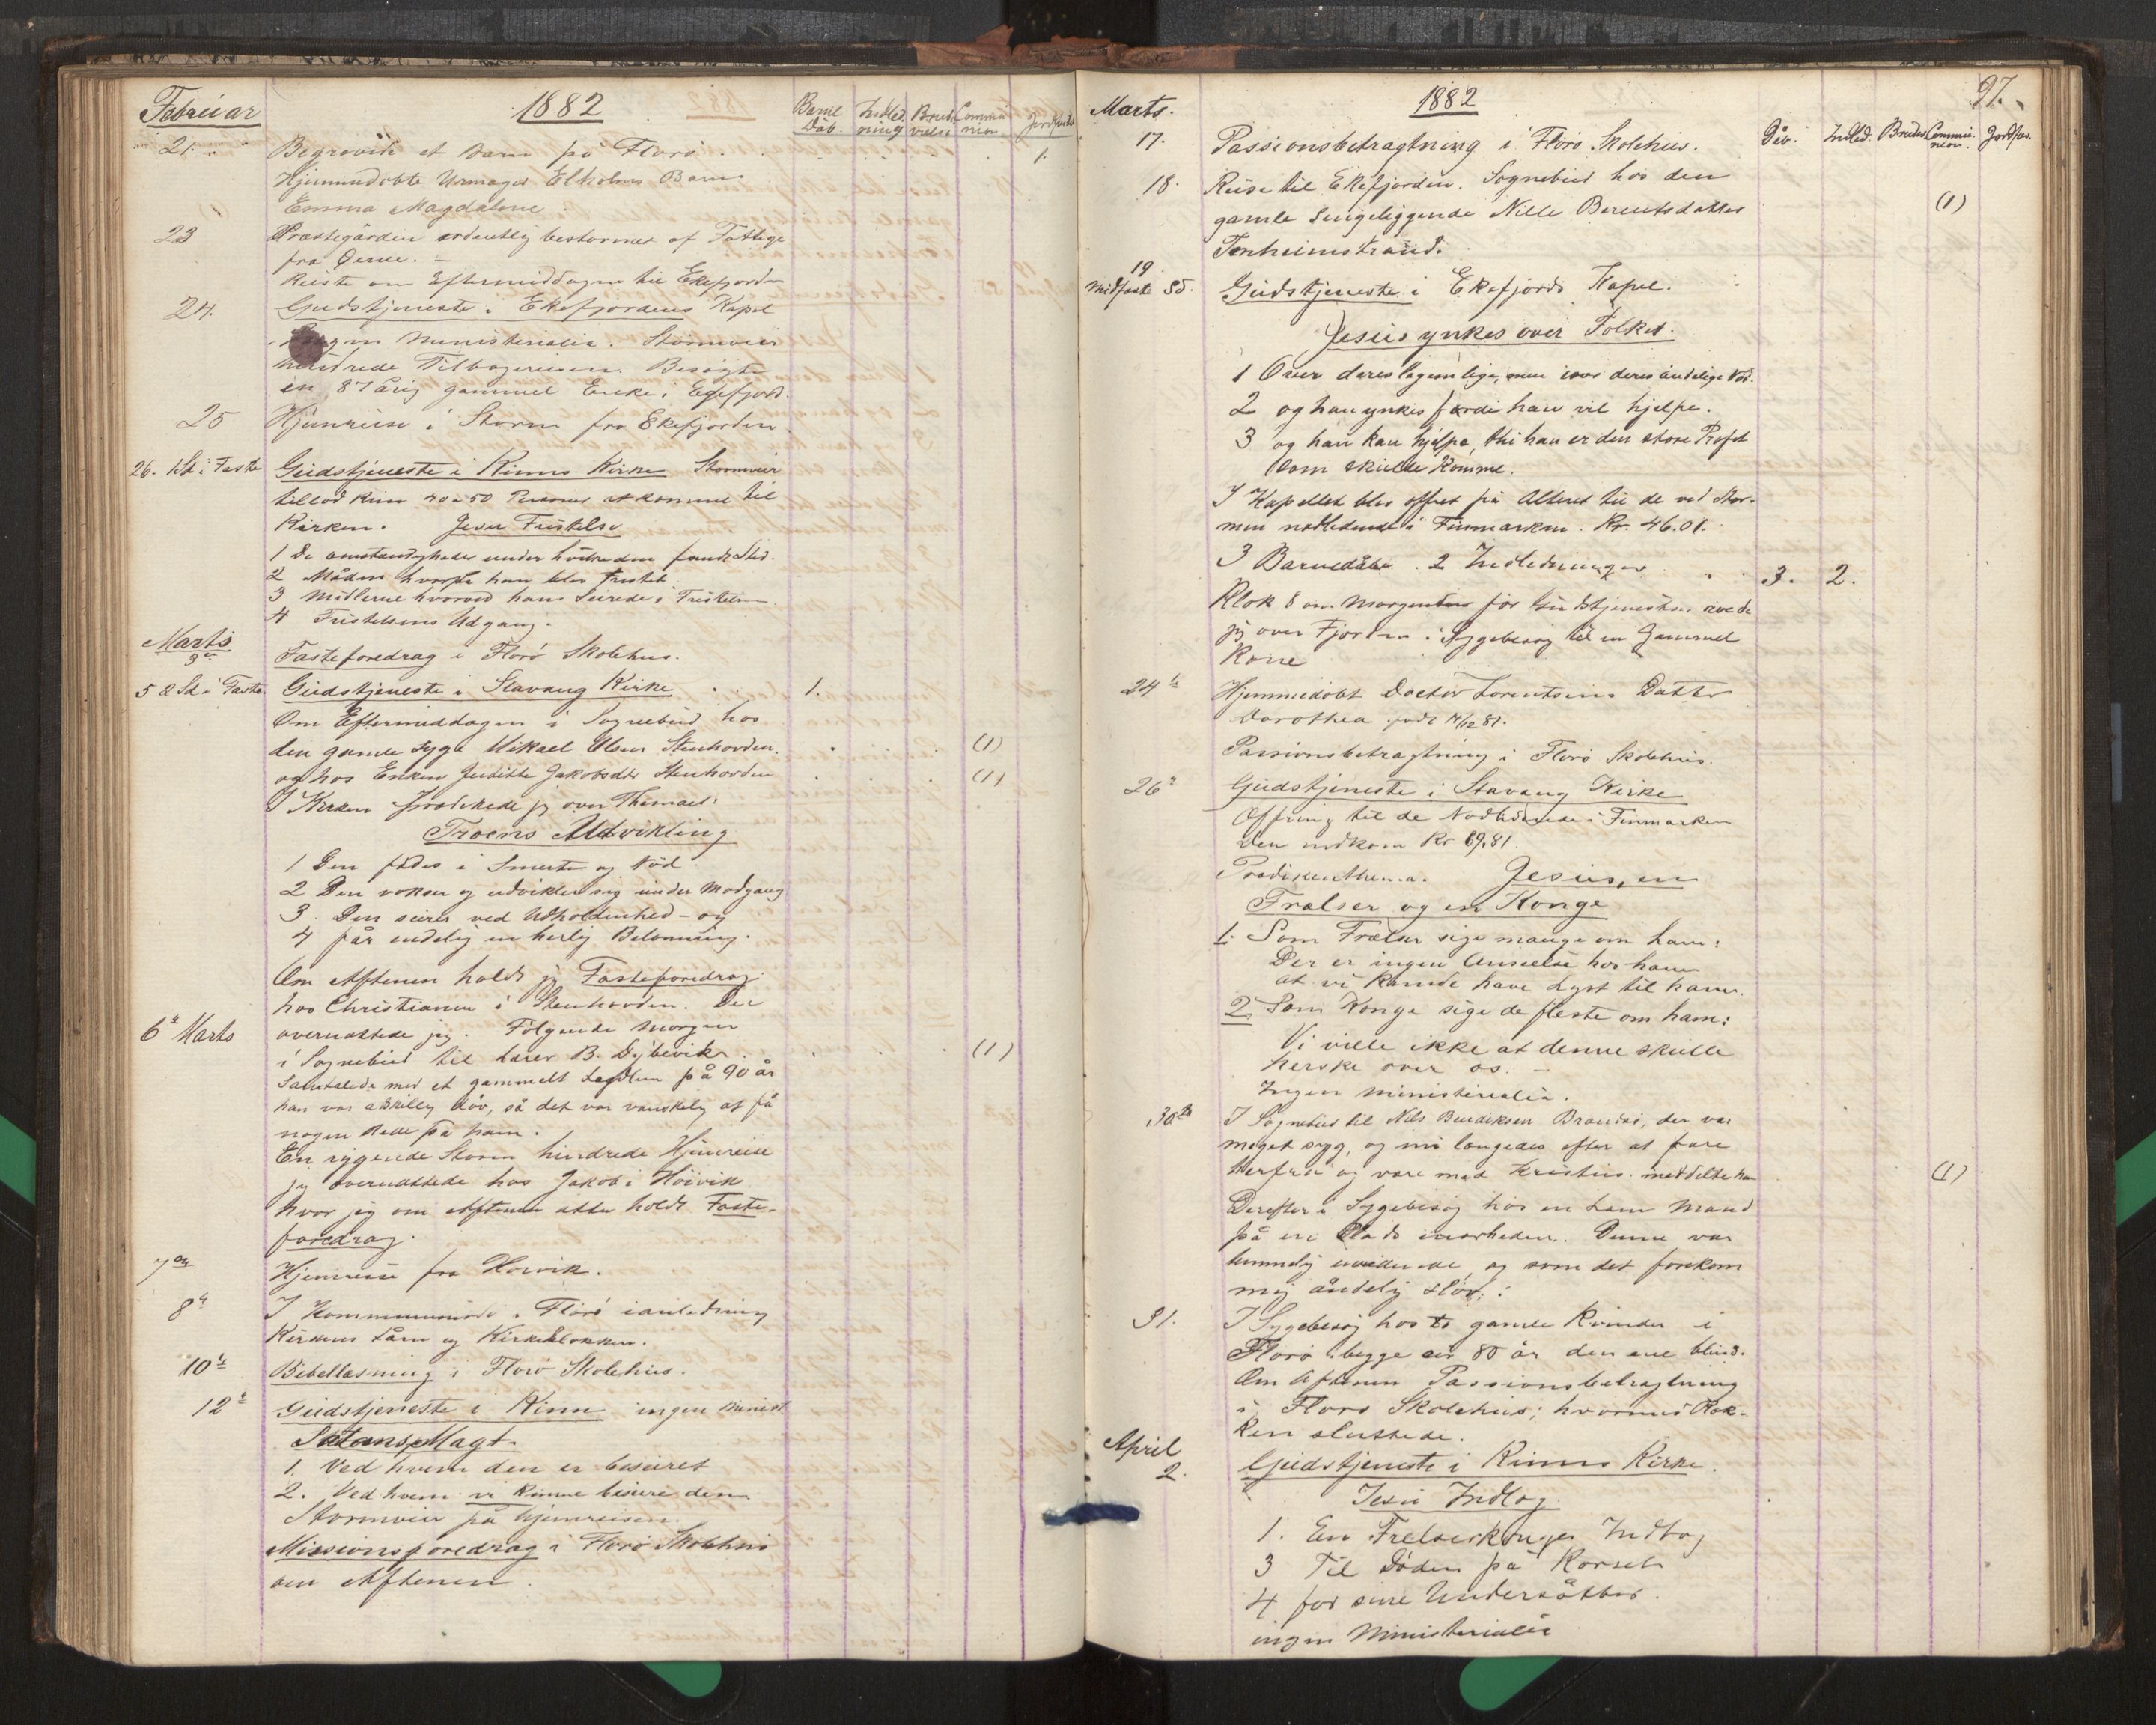 Februar
1882
Barne Dåb.
Indled ning
Brud vielse
Commu nion
Jordfæst
21.
Begravede et Barn på Florø
1.
Hjemmedøbte Urmager Elholms Barn
Emma Magdalene
23
Præstegården ordentlig bestormet af Fattige
fra Øerne. –
Reiste om Eftermiddagen til Ekefjorden
24.
Gudstjeneste i Ekefjordens Kapel
Ingen Ministerialia. Stormveir
hindrede Tilbagereisen. Besøgte
en 87 årig gammel Enke i Egefjord.
25
Hjemreise i Storm fra Ekefjorden
26. 1 Sd i Faste
Gudstjeneste i Kinns Kirke Stormveir
tillod kun 40 a 50 Personer at komme til
Kirken. Jesu Fristelse
1 De omstændigheder under hvilke den fandt Sted.
2 Måden hvorpå han blev fristet
3 Midlerne hvorved han seirede i Fristelsen
4 Fristelsens Udgang.
Marts
3die
Fasteforedrag i Florø Skolehus.
5 2 Sd i Faste
Gudstjeneste i Stavang Kirke
1.
Om Eftermiddagen i Sognebud hos
den gamle syge Mikael Olsen Stenhovden.
(1)
og hos Enken Judithe Jakobsdtr Stenhovden
(1)
I Kirken prædikede jeg over Themaet:
Troens Udvikling
1 Den fødes i Smerte og Nød
2 Den vokser og udvikler sig under Modgang
3. Den seirer ved Udholdenhed – og
4 får endelig en herlig Belønning.
Om Aftenen holdt jeg Fasteforedrag
hos Christianne i Stenhovden. Der
6te Marts
overnattede jeg. Følgende Morgen
i Sognebud til Lærer B. Dybevik
(1)
Samtalede med et gammelt Lægdlem på 90 år
han var adskillig døv, så det var vanskelig at få
nogen Rede på ham.
En rygende Storm hindrede Hjemreise
jeg overnattede hos Jakob i Høivik
hvor jeg om Aftenen atter holdt Faste-
foredrag.
7de
Hjemreise fra Høivik.
8de
I Kommunemøde i Florø ianledning
Kirkens Tårn og Kirkeklokken.
10de
Bibellæsning i Florø Skolehus.
12te
Gudstjeneste i Kinn ingen Minist.
Satans Magt.
1. Ved hvem den er beseiret
2. Ved hvem vi kunne beseire den
Stormveir på Hjemreisen.
Missionsforedrag i Florø Skolehus
om Aftenen.
Marts.
1882
97.
Dåb.
Indled.
Brudev
Commu nion.
Jordfæs.
17.
Passionsbetragtning i Florø Skolehus.
18.
Reise til Ekefjorden. Sognebud hos den
(1)
gamle sengeliggende Nille Berentsdatter
Tonheimstrand.
19
Midfaste Sd.
Gudstjeneste i Ekefjords Kapel.
Jesus ynkes over Folket.
1 Over deres legemlige, men især deres åndelige Nød.
2 og han ynkes fordi han vil hjelpe.
3 og han kan hjelpe, thi han er den store Profet
som skulde komme.
I Kapellet blev offret på Alteret til de ved Stor-
men nødlidende i Finmarken. Kr. 46.01.
3 Barnedåbe. 2 Indledninger
3.
2.
Klok 8 om Morgenen før Gudstjenesten roede
jeg over Fjorden i Sygebesøg til en Gammel
Kone
24de
Hjemmedøbt Doctor Lorentsens Datter
Dorothea født 14/12 81.
Passionsbetragtning i Florø Skolehus.
26de
Gudstjeneste i Stavang Kirke
Offring til de Nødlidende i Finmarken
Den indkom Kr 69.81.
Prædikenthema. Jesus, en
Frælser og en Konge
1. Som Frælser sige mange om ham:
Der er ingen Anseelse hos ham
at vi kunde have Lyst til ham.
2. Som Konge sige de fleste om ham:
Vi ville ikke at denne skulle
herske over os. –
Ingen ministerialia.
30te
I Sognebud til Nils Bendiksen Brandsø, der var
meget syg, og nu længedes efter at fare
herfra og være med Kristus. meddelte ham
(1)
Derefter i Sygebesøg hos en lam Mand
på en Plads i nærheden. Denne var
temmelig uvidende og som det forekom
mig åndelig sløv.
31.
I Sygebesøg hos to gamle Kvinder i
Florø begge over 80 år den ene blind.
Om Aftenen Passionsbetragtning
i Florø Skolehus; hvormed Ræk-
ken sluttede.
April
2.
Gudstjeneste i Kinns Kirke.
Jesu Indtog
1. En Frelserkonges Indtog
3 Til Døden på Korset
4 for sine Undersåtter.
ingen Ministerialia